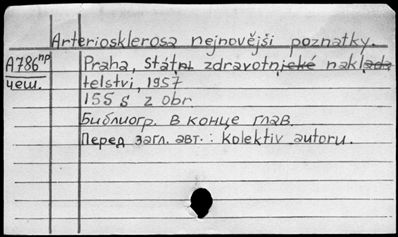 Arteriosklerosa nejnovějši poznatky.
A786пр Praha, Státni zdravotnické naklada
чеш. telstvi, 1957
155 s z obr.
Библиогр. в конце глав.
Перед загл. авт.: kolektiv autoru.